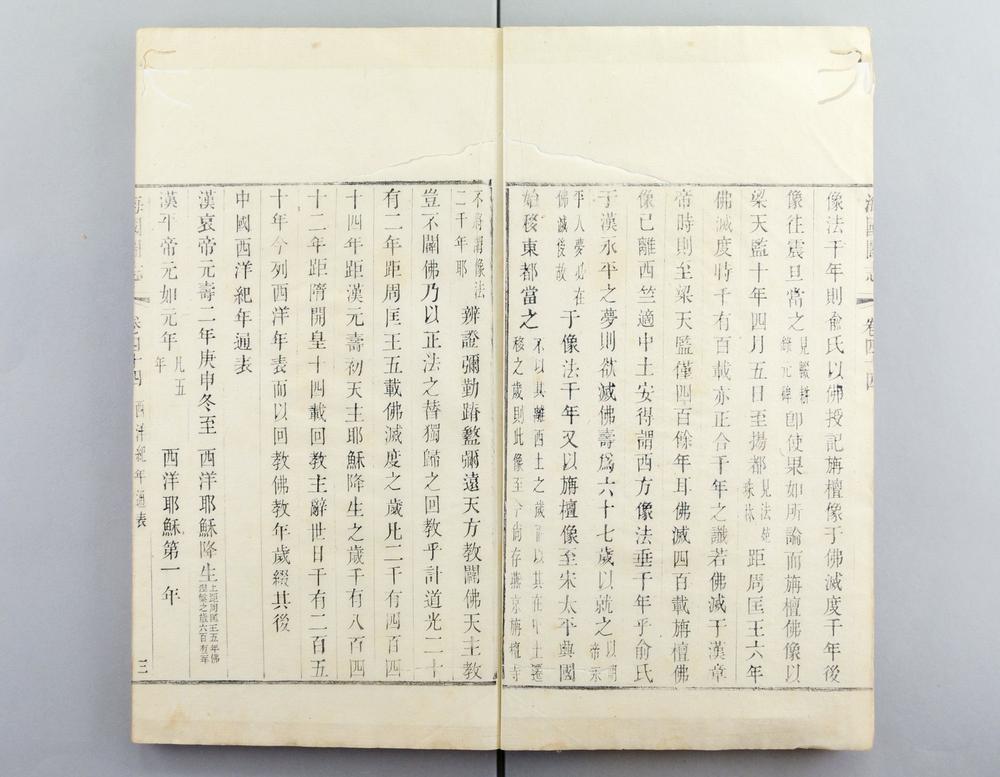 海國圖志 卷四十四
像法千年則俞氏以佛授記旃檀像于佛滅度千年後
像往震旦當之見輟耕錄元碑卽使果如所論而旃檀佛像以
梁天監十年四月五日至揚都見法苑珠林距周匡王六年
佛滅度時千有百載亦正合千年之讖若佛滅于漢章
帝時則至梁天監僅四百餘年耳佛滅四百載旃檀佛
像已離西竺適中土安得謂西方像法垂千年乎俞氏
于漢永平之夢則欲滅佛壽爲六十七歲以就之以明帝永
平入夢必在佛滅後故于像法千年又以旃檀像至宋太平興國
始移東都當之不以其離西土之歲而以其在中土遷移之歲則此像至今尚存燕京旃檀寺
不將謂像法二千年耶辨證彌勤踳盭彌遠天方教闢佛天主教
豈不闢佛乃以正法之替獨歸之回教乎計道光二十
有二年距周匡王五載佛滅度之歲凡二千有四百四
十四年距漢元壽初天主耶穌降生之歲千有八百四
十二年距隋開皇十四載回教主辭世日千有二百五
十年今列西洋年表而以回教佛教年歲綴其後
中國西洋紀年通表
漢哀帝元壽二年庚申冬至 西洋耶穌降生上距周匡王五年佛涅槃之歲六百有年
漢平帝元始元年凡五年 西洋耶穌第一年
海國圖志 卷四十四 西洋紀年通表 三